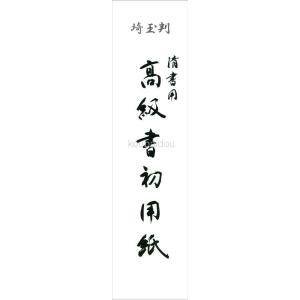 埼玉判
清書用
高級書初用紙